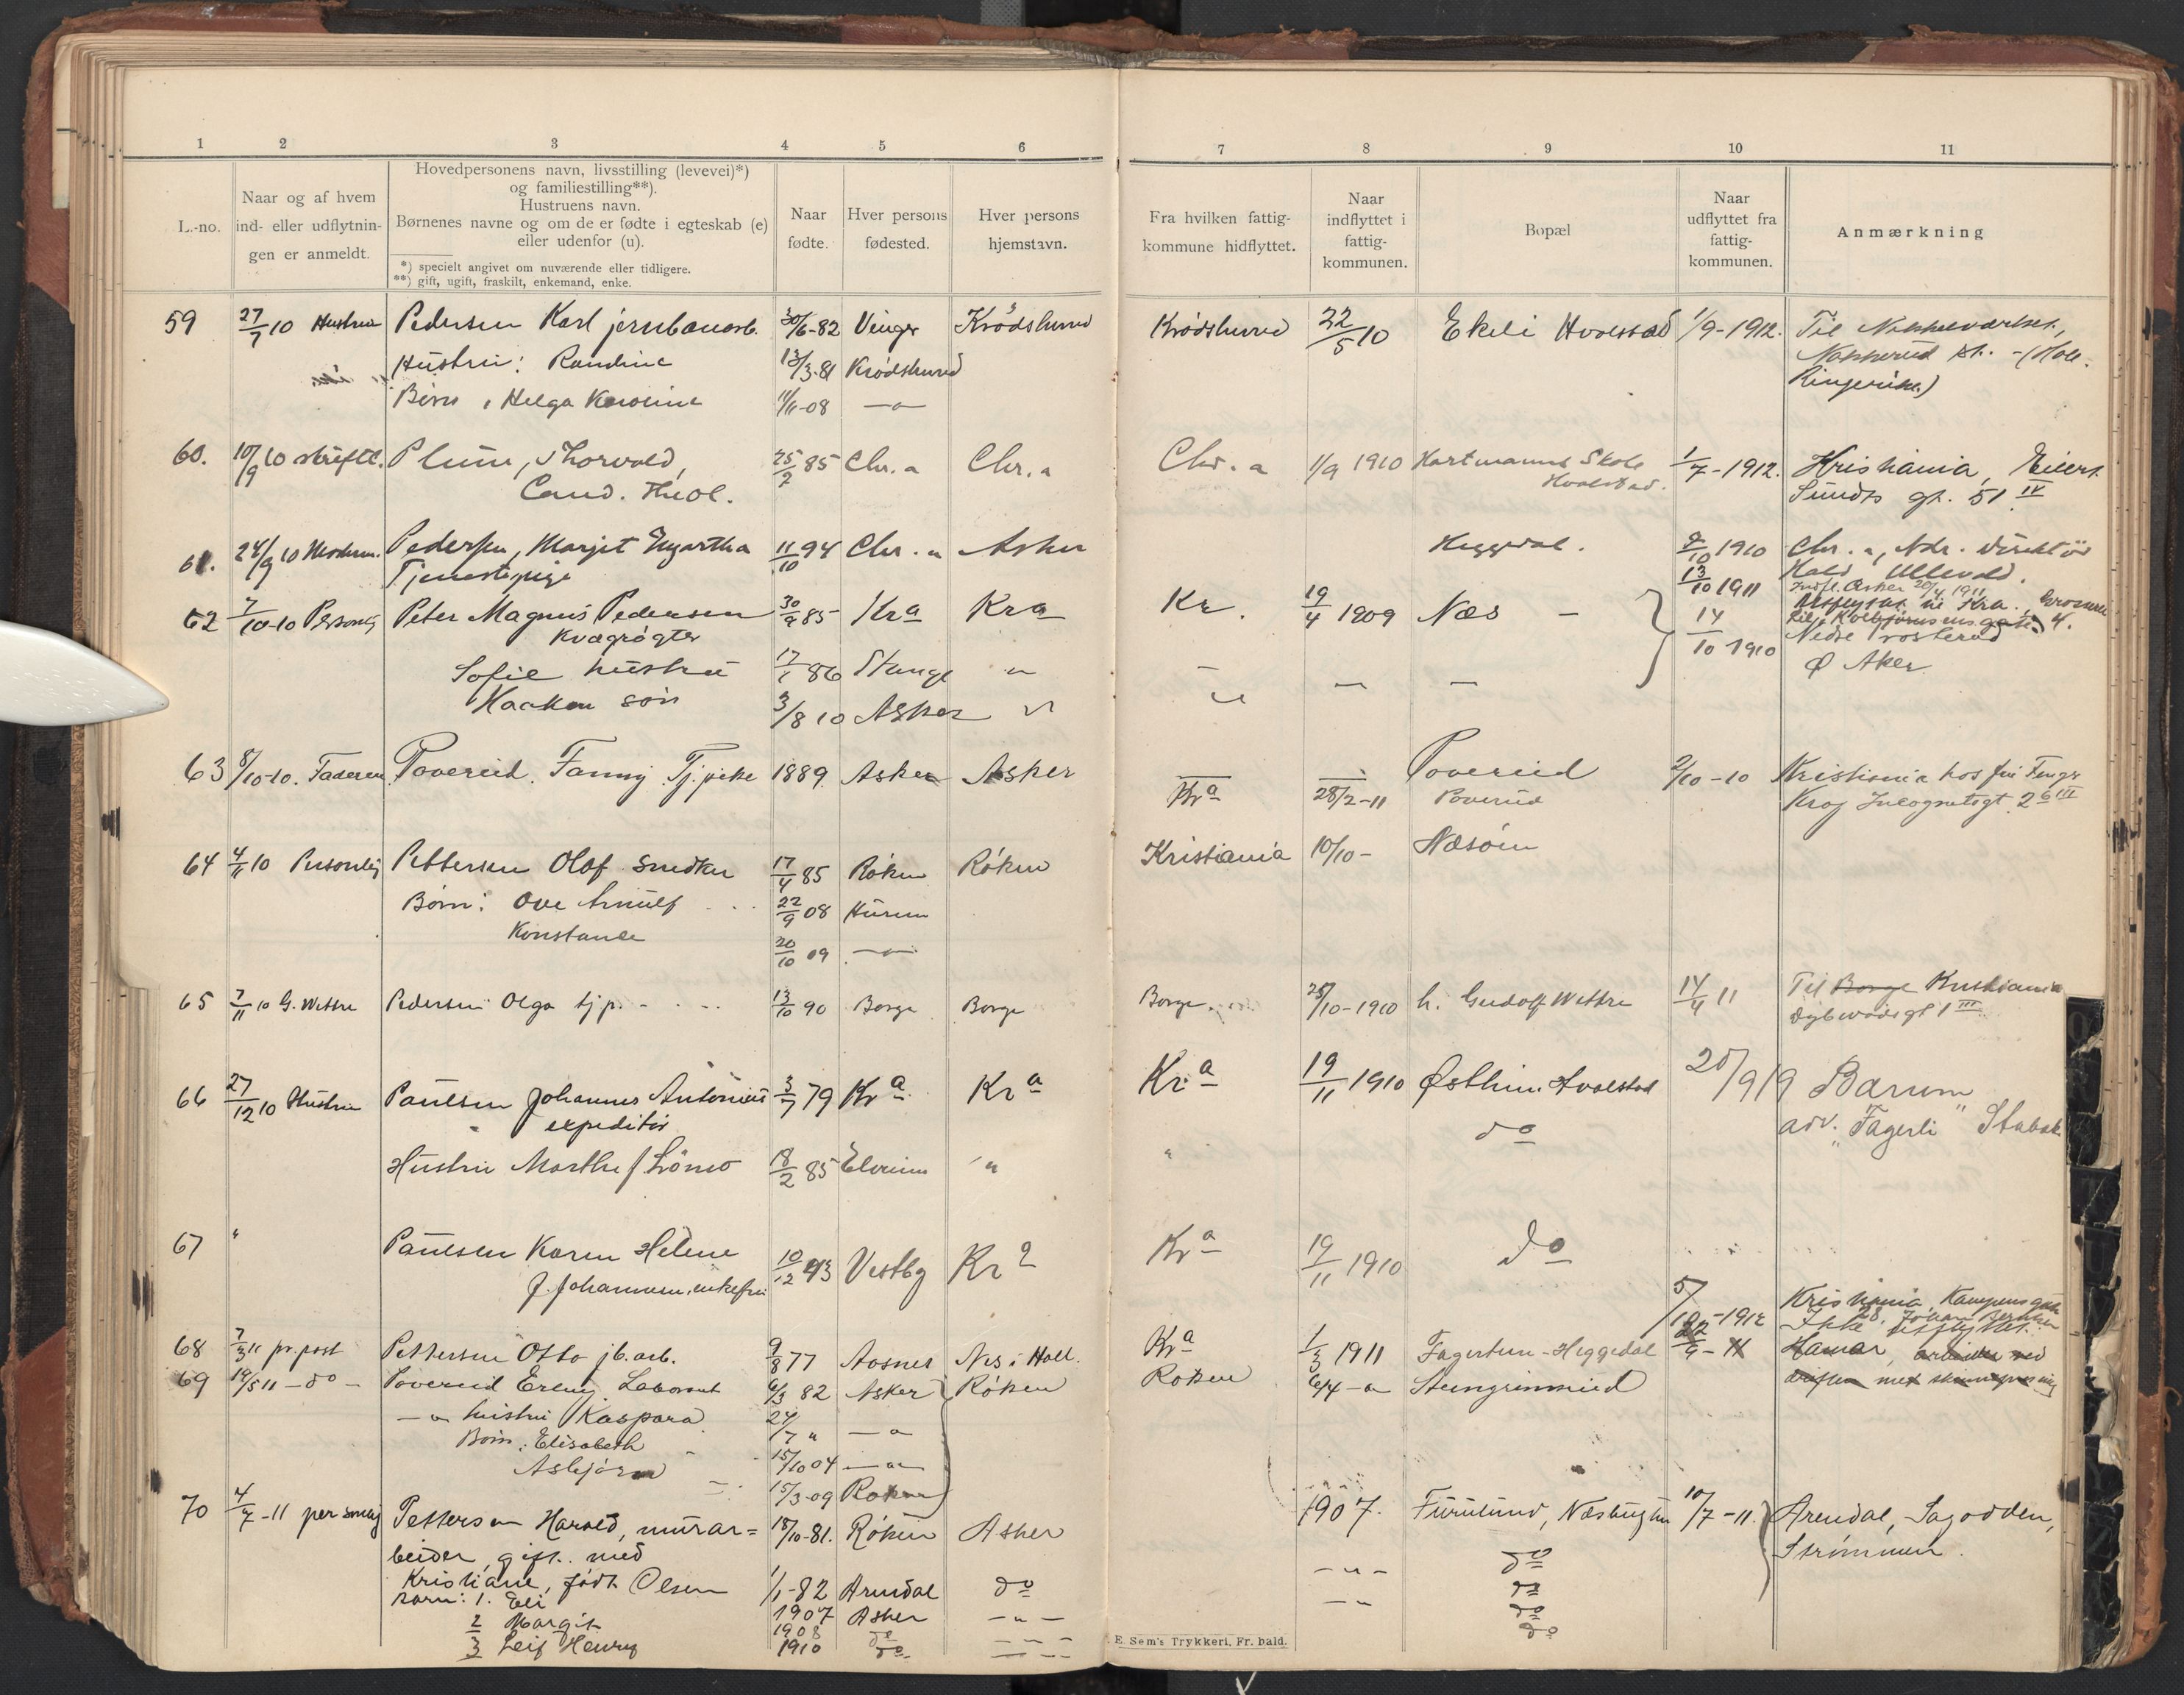 1 2 3 4 5 6 7 8 9 10 11
L.-no.
Naar og af hvem
ind- eller udflytnin-
gen er anmeldt.
Hovedpersonens navn, livsstilling (levevei)*)
og familiestilling**).
Hustruens navn.
Børnenes navne og om de er fødte i egteskab (e)
eller udenfor (u).
*) specielt angivet om nuværende eller tidligere.
**) gift, ugift, fraskilt, enkemand, enke.
Naar
fødte.
Hver persons
fødested.
Hver persons
hjemstavn.
Fra hvilken fattig-
kommune hidflyttet.
Naar
indflyttet i
fattig-
kommunen.
Bopæl
Naar
udflyttet fra
fattig-
kommunen.
Anmærkning
59 27/7 10 Hustru Pedersen Karl jernbanarb. 30/6-82 Vinger Krødsherred Krødsherred 22/5 10 Ekeli Hvalstad 1/9-1912. Til
Hustru: Randine 13/3-81 Krødsherred (Hole
Børn, Helga Karoline 11/11-08 —"— Ringerike)
60. 10/9 10 skriftl. Plum, Thorvald, 25/2 85 Chr.a Chr.a Chr.a 1/9 1910 Hartmanns Skole 1/7-1912. Kristiania, Eilert
Cand. theol. Hvalstad. Sundts gt. 51 IV
61. 24/9 10 Modern. Pedersen, Margit 11/10 94 Chr.a Asker Heggedal. 2/10 1910 Chr.a, Adr. Direktør
Tjenestepige 13/10 1911 Hald Ullevold.
Indfl. Asker 20/4 1911
62 7/10-10 Personlig Peter Magnus Pedersen 30/9 85 Kra Kra Kr. 19/4 1909 Næs — 14/10 1910 Udflyttet til Kra.
Kvægrøgter Nedre
Sofie hustru 17/1 86 Stange " — — — Ø Aker
Haakon søn 3/8 10 Asker " "
63 8/10-10. Faderen Poverud. Fanny Tj.pike 1889. Asker Asker — — Poverud 2/10-10 Kristiania hos fru Fengr
Kra 28/2-11 Poverud Krog Incognitogt. 26 III
64 4/11 10 Personlig Pettersen Olaf Snedker 17/4 85 Røken Røken Kristiania 10/10- Næsøen
Børn: Ove Arnulf 22/9 08 Hurum
Konstance 20/10 09 —"—
65 7/11 10 G. Wettre Pedersen Olga tjp. 13/10 90 Borge Borge Borge 25/10-1910 h. Gudolf Wettre 14/4 11 Til Borge Kristiania
Dybwadsgt 1 III
66 27/12 10 Hustru Paulsen Johannes Antonius 3/7 79 Kra Kra Kra 19/11 1910 Østhim Hvalstad 20/9 19 Bærum
expeditør do adr. "Fagerli" Stabæk
Hustru Marthe f. Lönsø 18/2 85 Elverum " "
67 " Paulsen Karen Helene 10/12 43 Vestby Kra Kra 19/11 1910 do
f. Johannesen, enkefru
5/10-1912 Kristiania, Kampensgate
28, Johan
Ikke udflyttet.
68 7/3 11 pr. post Pettersen Otto jb.arb. 9/8 77 Aasnes Nes i Hall. Kra 1/3 1911 Fagertun-Heggedal 22/9-11 Hamar, arbeider ved
69 19/5 11 —do— Poverud Erling. Laborant 6/3 82 Asker Røken Røken 6/4-" Steingrimsrud driften med
—"— hustru Kaspara 24/7 " —"—
Børn: Elisabeth 15/10 04 —"—
Asbjørn 15/3-09 Røken
70 4/7-11 personlig Pettersen Harald, murar= 18/10-81. Røken Asker 1907. Furulund, Næsbugten 10/7-11. Arendal, Sagodden,
beider, gift med —"— do Strømmen.
Kristiane, født Olsen 1/1-82 Arendal do —"— do
Barn: 1. Eli 1907 Asker —"— do
2 Margit 1908 do —"— do
3 Leif Henry 1910 do —"—
E. Sem's Trykkeri, Fr. hald.